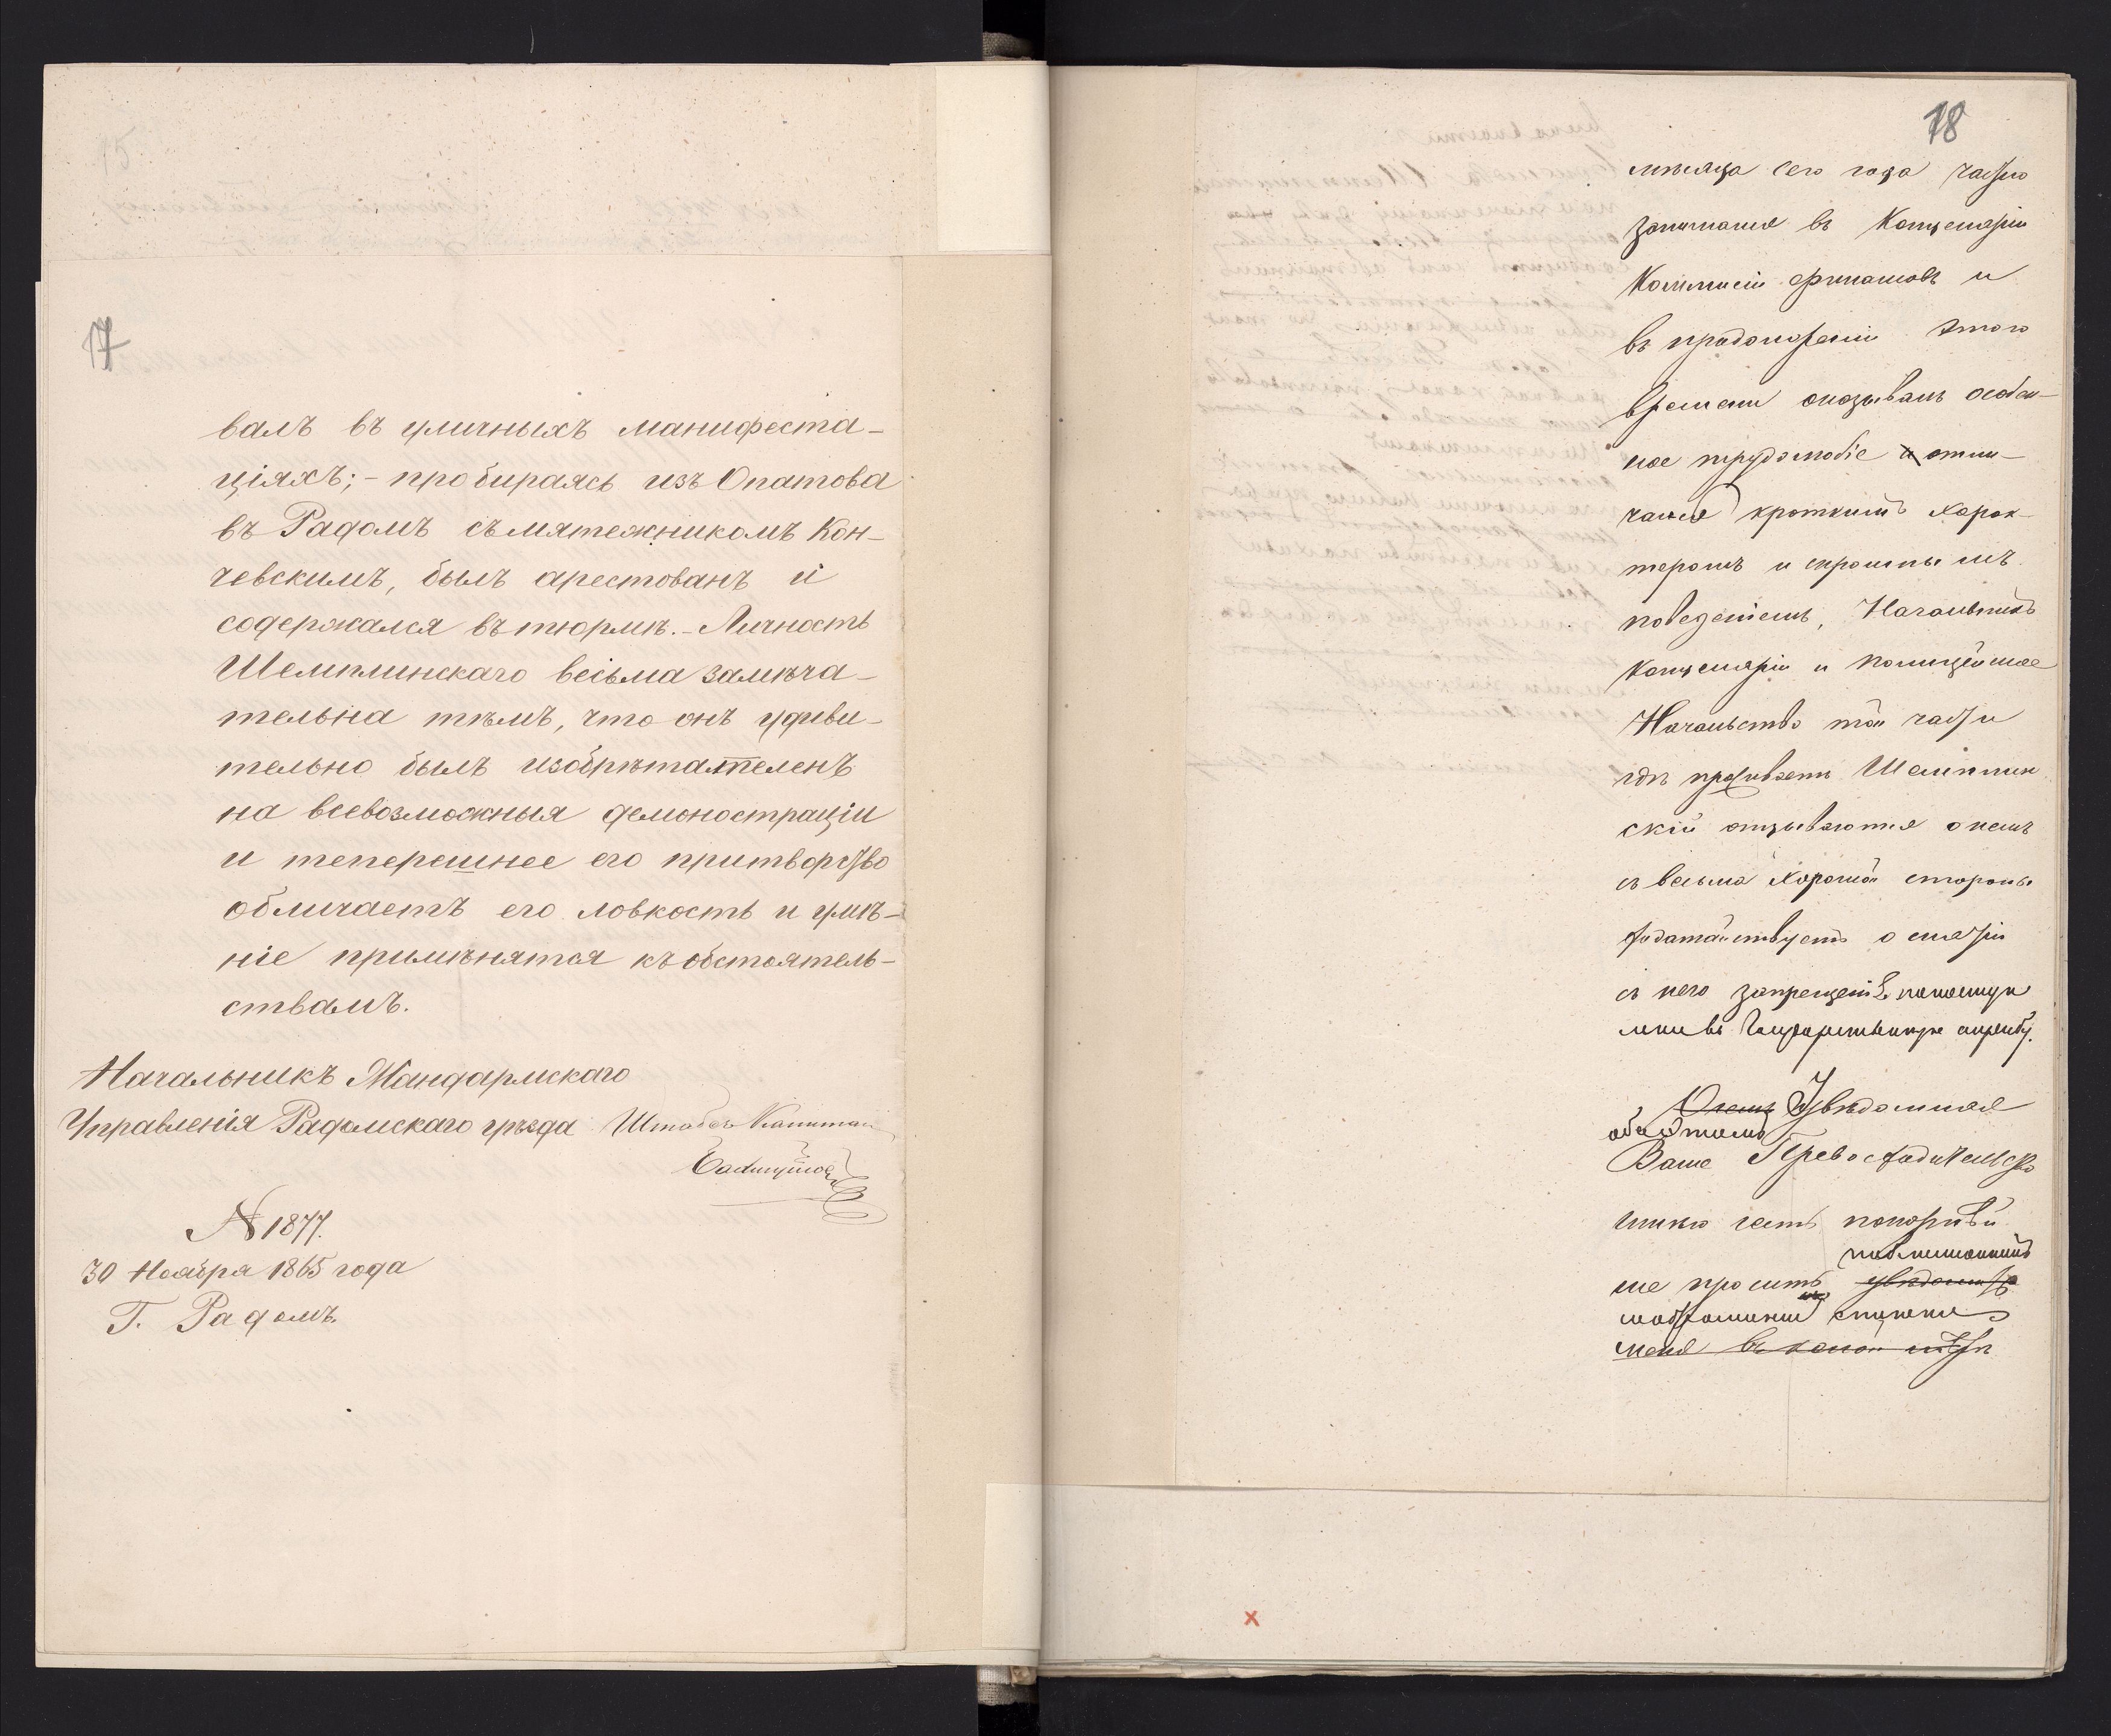 17
валъ въ уличныхъ манифеста-
ціяхъ; - пробираясь изъ Опатова
въ Радомъ съ мятежникомъ Кон-
чевскимъ, былъ арестованъ и
содержался въ тюрмѣ. - Личность
Шемплинскаго весьма замѣча-
тельна тѣмъ, что онъ удиви-
тельно былъ изобрѣтателенъ
на всевозможныя демонострации
и теперешнее его притворство
обличаетъ его ловкость и умѣ-
ніе примѣнятся къ обстоятель-
ствамъ.
Начальникъ Жандармскаго
Управленія Радомскаго уѣзда Штабсъ Капитан
№ 1877.
30 Ноября 1865 года
Г. Радомъ.
18
мѣсяца сего года частю
занимался въ Канцеляріи
Коммисіи финансовъ и
въ продолженіи этого
времени оказывалъ особен-
ное трудолюбіе и отли-
чался кроткимъ харак-
теромъ и скромнымъ
поведеніемъ, Начальникъ
Канцеляріи и полицейское
Начальство той части
гдѣ проживаетъ Шемплин
скій отзываются о немъ
съ весьма хорошей стороны
ходатайствуетъ о снятіи
съ него запрещенія
въ Государственную службу.
О чемъ Увѣдомляя
объ этомъ
Ваше Превосходительство
имѣю честь покорнѣй
ше просить увѣдомить
меня въ